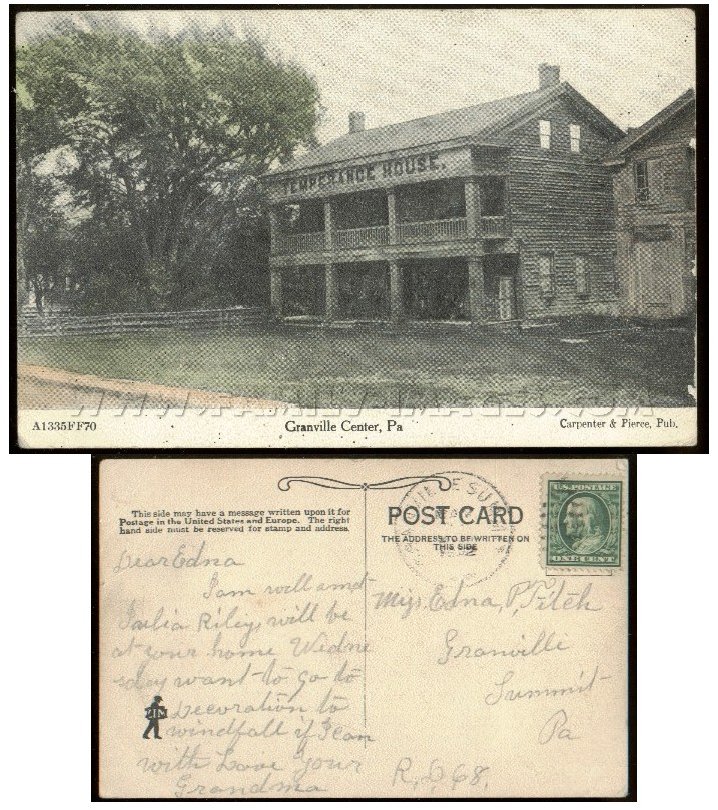 TEMPERANCE HOUSE.
WWW.FAMILY-IMAGES.COM
A1335FF70
Granville Center, Pa
Carpenter & Pierce, Pub.
This side may have a message written upon it for
Postage in the United States and Europe. The right
hand side must be reserved for stamp and address.
POST CARD
THE ADDRESS TO BE WRITTEN ON
THIS SIDE
U.S. POSTAGE
ONE CENT
Dear Edna
I am well and
Riley will be
at your home Wedne
sday want to go to
Decoration to
windfall if I can
with Love your
Grandma
Miss Edna P. Fitch
Granville
Summit
Pa
R.D. 68.